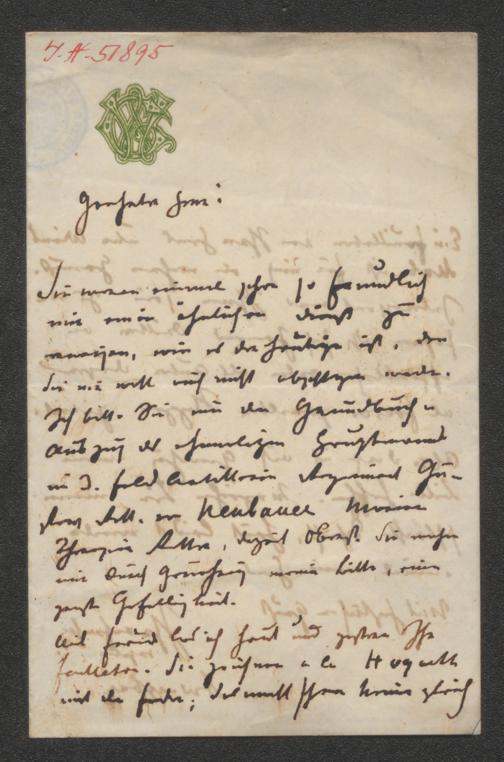 I.N. 51895
Geehrter Herr!
Sie waren einmal schon so freundlich
mir einen ähnlichen Dienst zu
erweisen, wie es der heutige ist, den
Sie mir wohl auch nicht abschlagen werden.
Ich bitte Sie mir den Grundbuchs
Auszug des ehemaligen Hauptmanns
im 3. Feld Artillerie Regiment Gu-
stav Neubauer
Theresien Ritter, derzeit Oberst. Sie
mir durch Gewährung meiner Bitte, eine
große Gefälligkeit.
Mit Freude las ich heut und gestern Ihr
Feuilleton. Sie zeichnen a la Hogarth
mit der Feder; das macht Ihnen keiner gleich